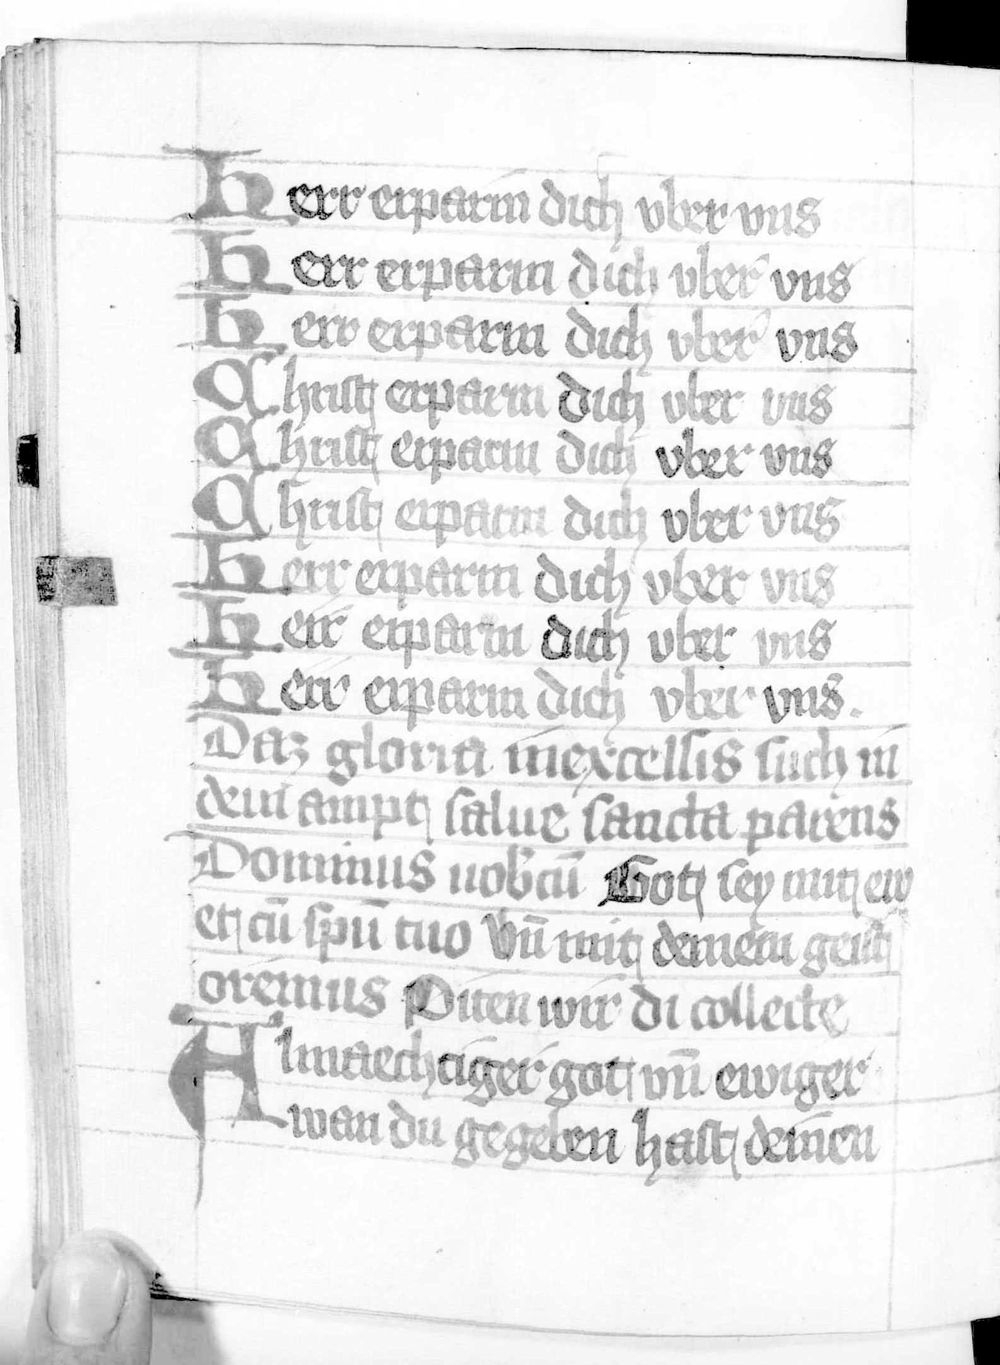 Herr erparm dich vber vns
Herr erparm dich vber vns
Herr erparm dich vber vns
Christ erparm dich vber vns
Christ erparm dich vber vns
Christ erparm dich vber vns
Herr erparm dich vber vns
Herr erparm dich vber vns
Herr erparm dich vber vns.
Daz gloria inexcelsis such in
dem ampt salue sancta parens
Dominus uobcū Got sey mit ew
et cū spū tuo Vn̄ mit deinem geist
oremus Piten wir di collecte
Almaechtiger got vn̄ ewiger
wan du gegeben hast deinen